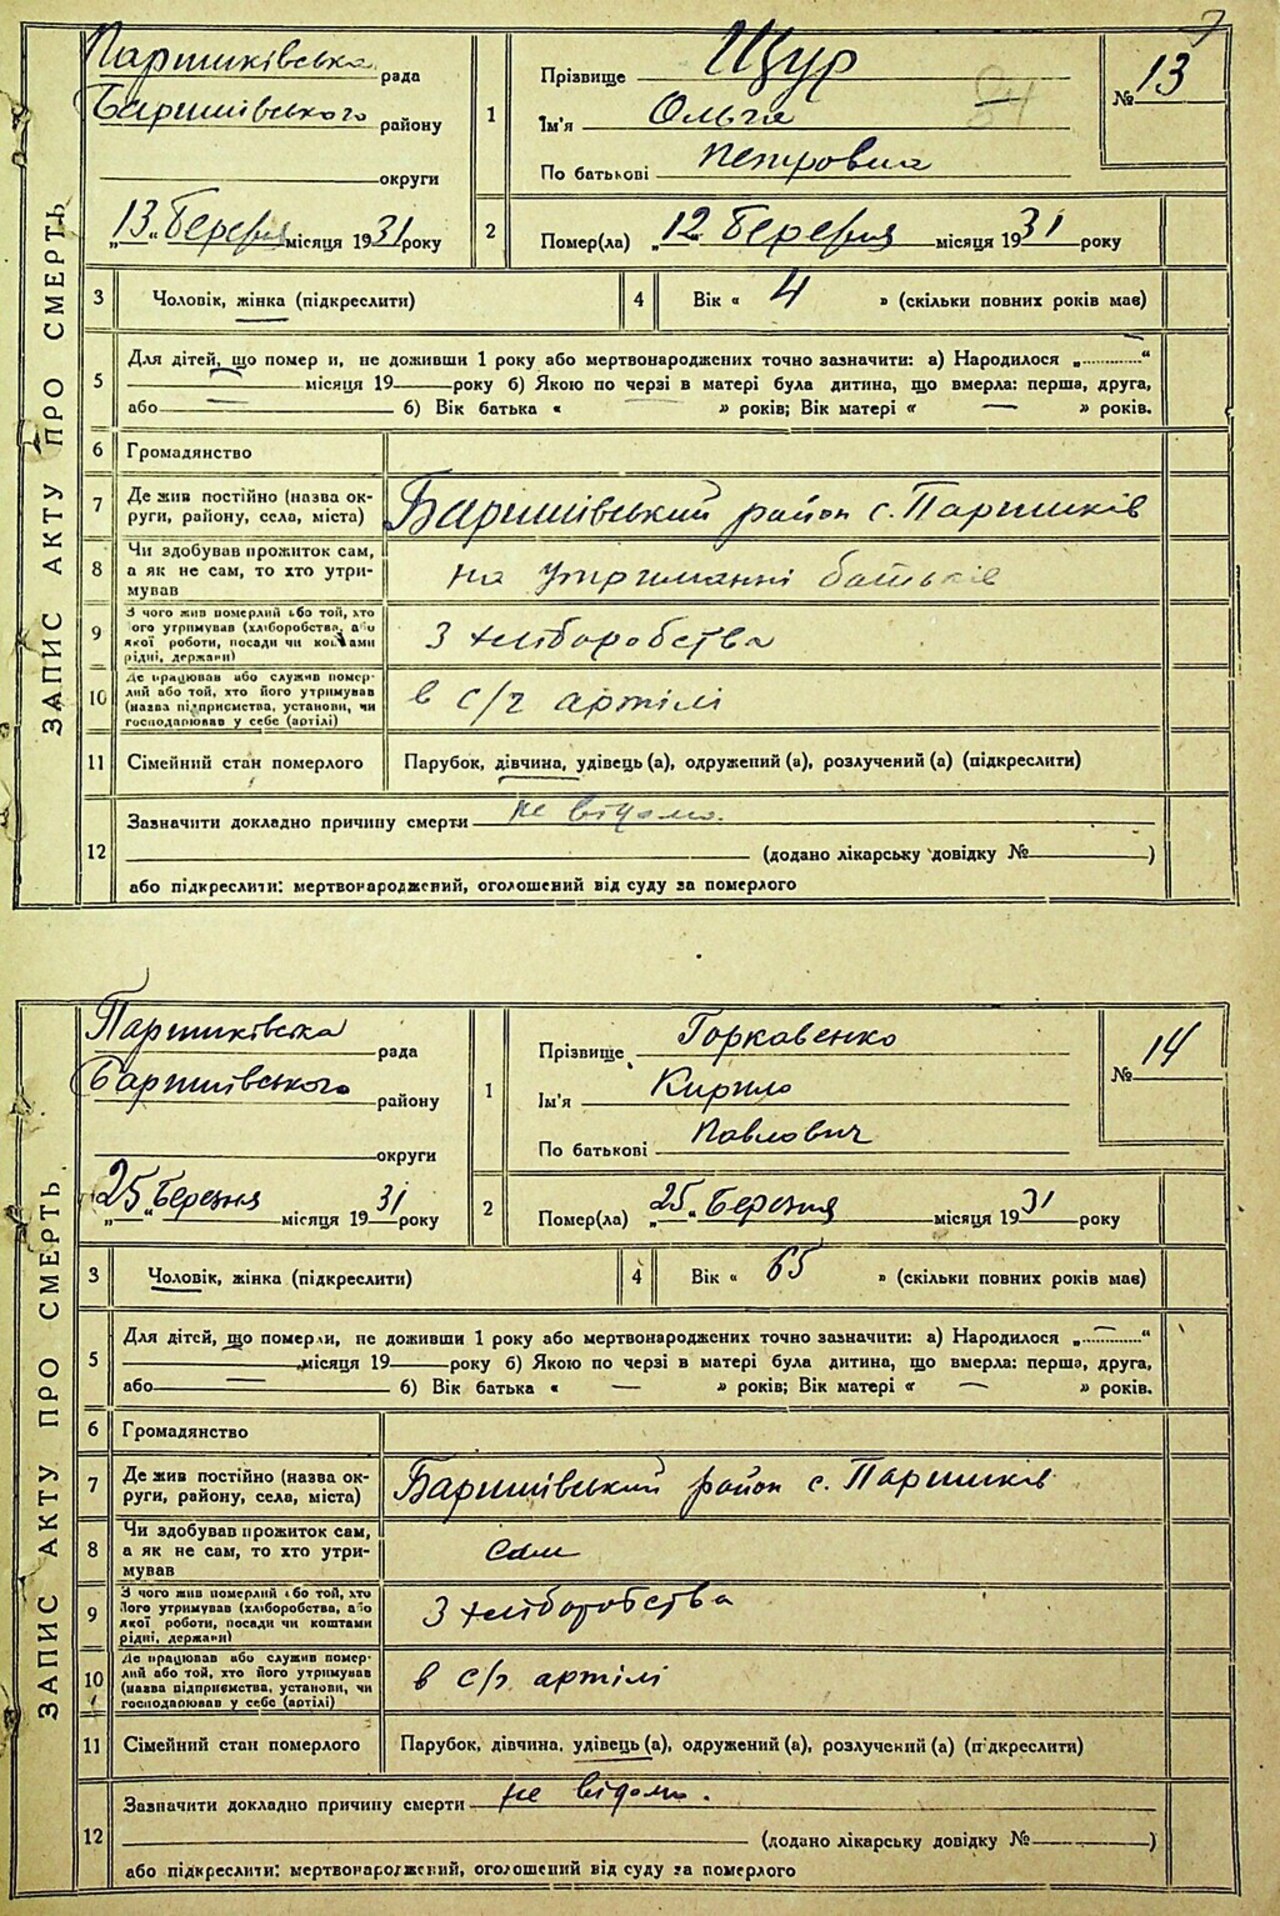 7
ЗАПИС АКТУ ПРО СМЕРТЬ
Паришківська рада
Баришівського району
округи
„13“ Березня місяця 1931 року
1
Прізвище Щур
Ім'я Ольга
По батькові Петровна
№ 13
2
Помер(ла) „12“ Березня місяця 1931 року
3 Чоловік, жінка (підкреслити)
4 Вік « 4 » (скільки повних років має)
5 Для дітей, що помер и, не доживши 1 року або мертвонароджених точно зазначити: а) Народилося „ “
— місяця 19 року б) Якою по черзі в матері була дитина, що вмерла: перша, друга,
або — б) Вік батька « » років; Вік матері « — » років.
6 Громадянство
7 Де жив постійно (назва ок-
руги, району, села, міста) Баришівський район с. Паришків
8 Чи здобував прожиток сам,
а як не сам, то хто утри-
мував на утриманні батьків
9 З чого жив померлий або той, хто
його утримував (хліборобства, або
якої роботи, посади чи коштами
рідні, держави) З хліборобства
10 Де працював або служив помер-
лий або той, хто його утримував
(назва підприємства, установи, чи
господарював у себе (артілі) в с/г артілі
11 Сімейний стан померлого Парубок, дівчина, удівець (а), одружений (а), розлучений (а) (підкреслити)
12 Зазначити докладно причину смерти не відомо.
(додано лікарську довідку № )
або підкреслити: мертвонароджений, оголошений від суду за померлого
ЗАПИС АКТУ ПРО СМЕРТЬ
Паришківська рада
Баришівського району
округи
„25“ Березня місяця 1931 року
1
Прізвище Горкавенко
Ім'я Кирило
По батькові Павлович
№ 14
2
Помер(ла) „25“ Березня місяця 1931 року
3 Чоловік, жінка (підкреслити)
4 Вік « 65 » (скільки повних років має)
5 Для дітей, що померли, не доживши 1 року або мертвонароджених точно зазначити: а) Народилося „ — “
місяця 19 року б) Якою по черзі в матері була дитина, що вмерла: перша, друга,
або — б) Вік батька « — » років; Вік матері « — » років.
6 Громадянство
7 Де жив постійно (назва ок-
руги, району, села, міста) Баришівський район с. Паришків
8 Чи здобував прожиток сам,
а як не сам, то хто утри-
мував сам
9 З чого жив померлий або той, хто
його утримував (хліборобства, або
якої роботи, посади чи коштами
рідні, держави) З хліборобства
10 Де працював або служив помер-
лий або той, хто його утримував
(назва підприємства, установи, чи
господарював у себе (артілі) в с/г. артілі
11 Сімейний стан померлого Парубок, дівчина, удівець (а), одружений (а), розлучений (а) (підкреслити)
12 Зазначити докладно причину смерти не відомо.
(додано лікарську довідку № )
або підкреслити: мертвонароджений, оголошений від суду за померлого